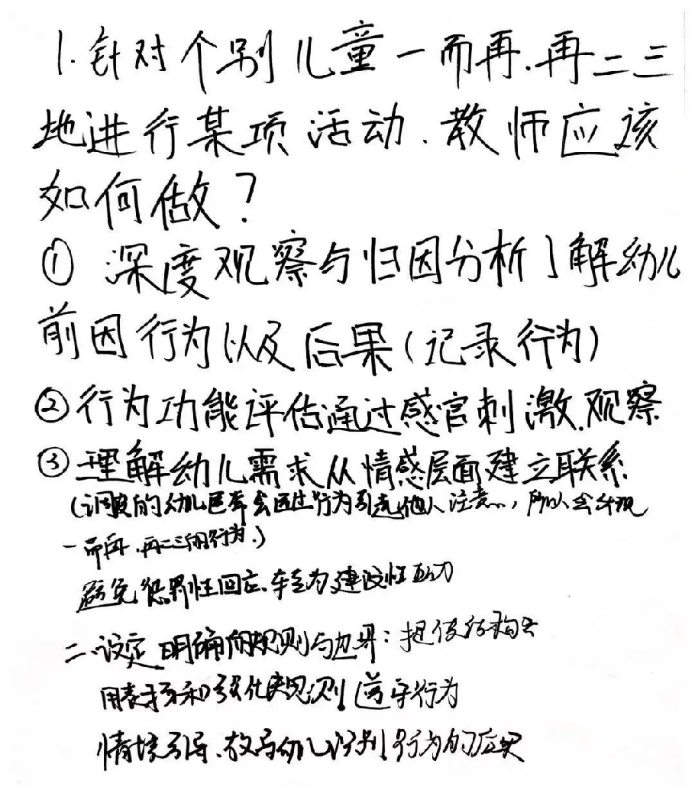 1.针对个别儿童一而再.再二三
地进行某项活动.教师应该
如何做?
① 深度观察与归因分析了解幼儿
前因行为以及后果(记录行为)
②行为功能评估通过感官刺激.观察
③理解幼儿需求从情感层面建立联系
(调皮的幼儿通过行为引起他人注意..,所以会出现
一而再.再二三的行为.)
避免惩罚性回应.转变为建设性互动
二.设定明确的规则与边界:提供结构
用表扬和强化规则遵守行为
情境引导.教导幼儿识别行为的后果